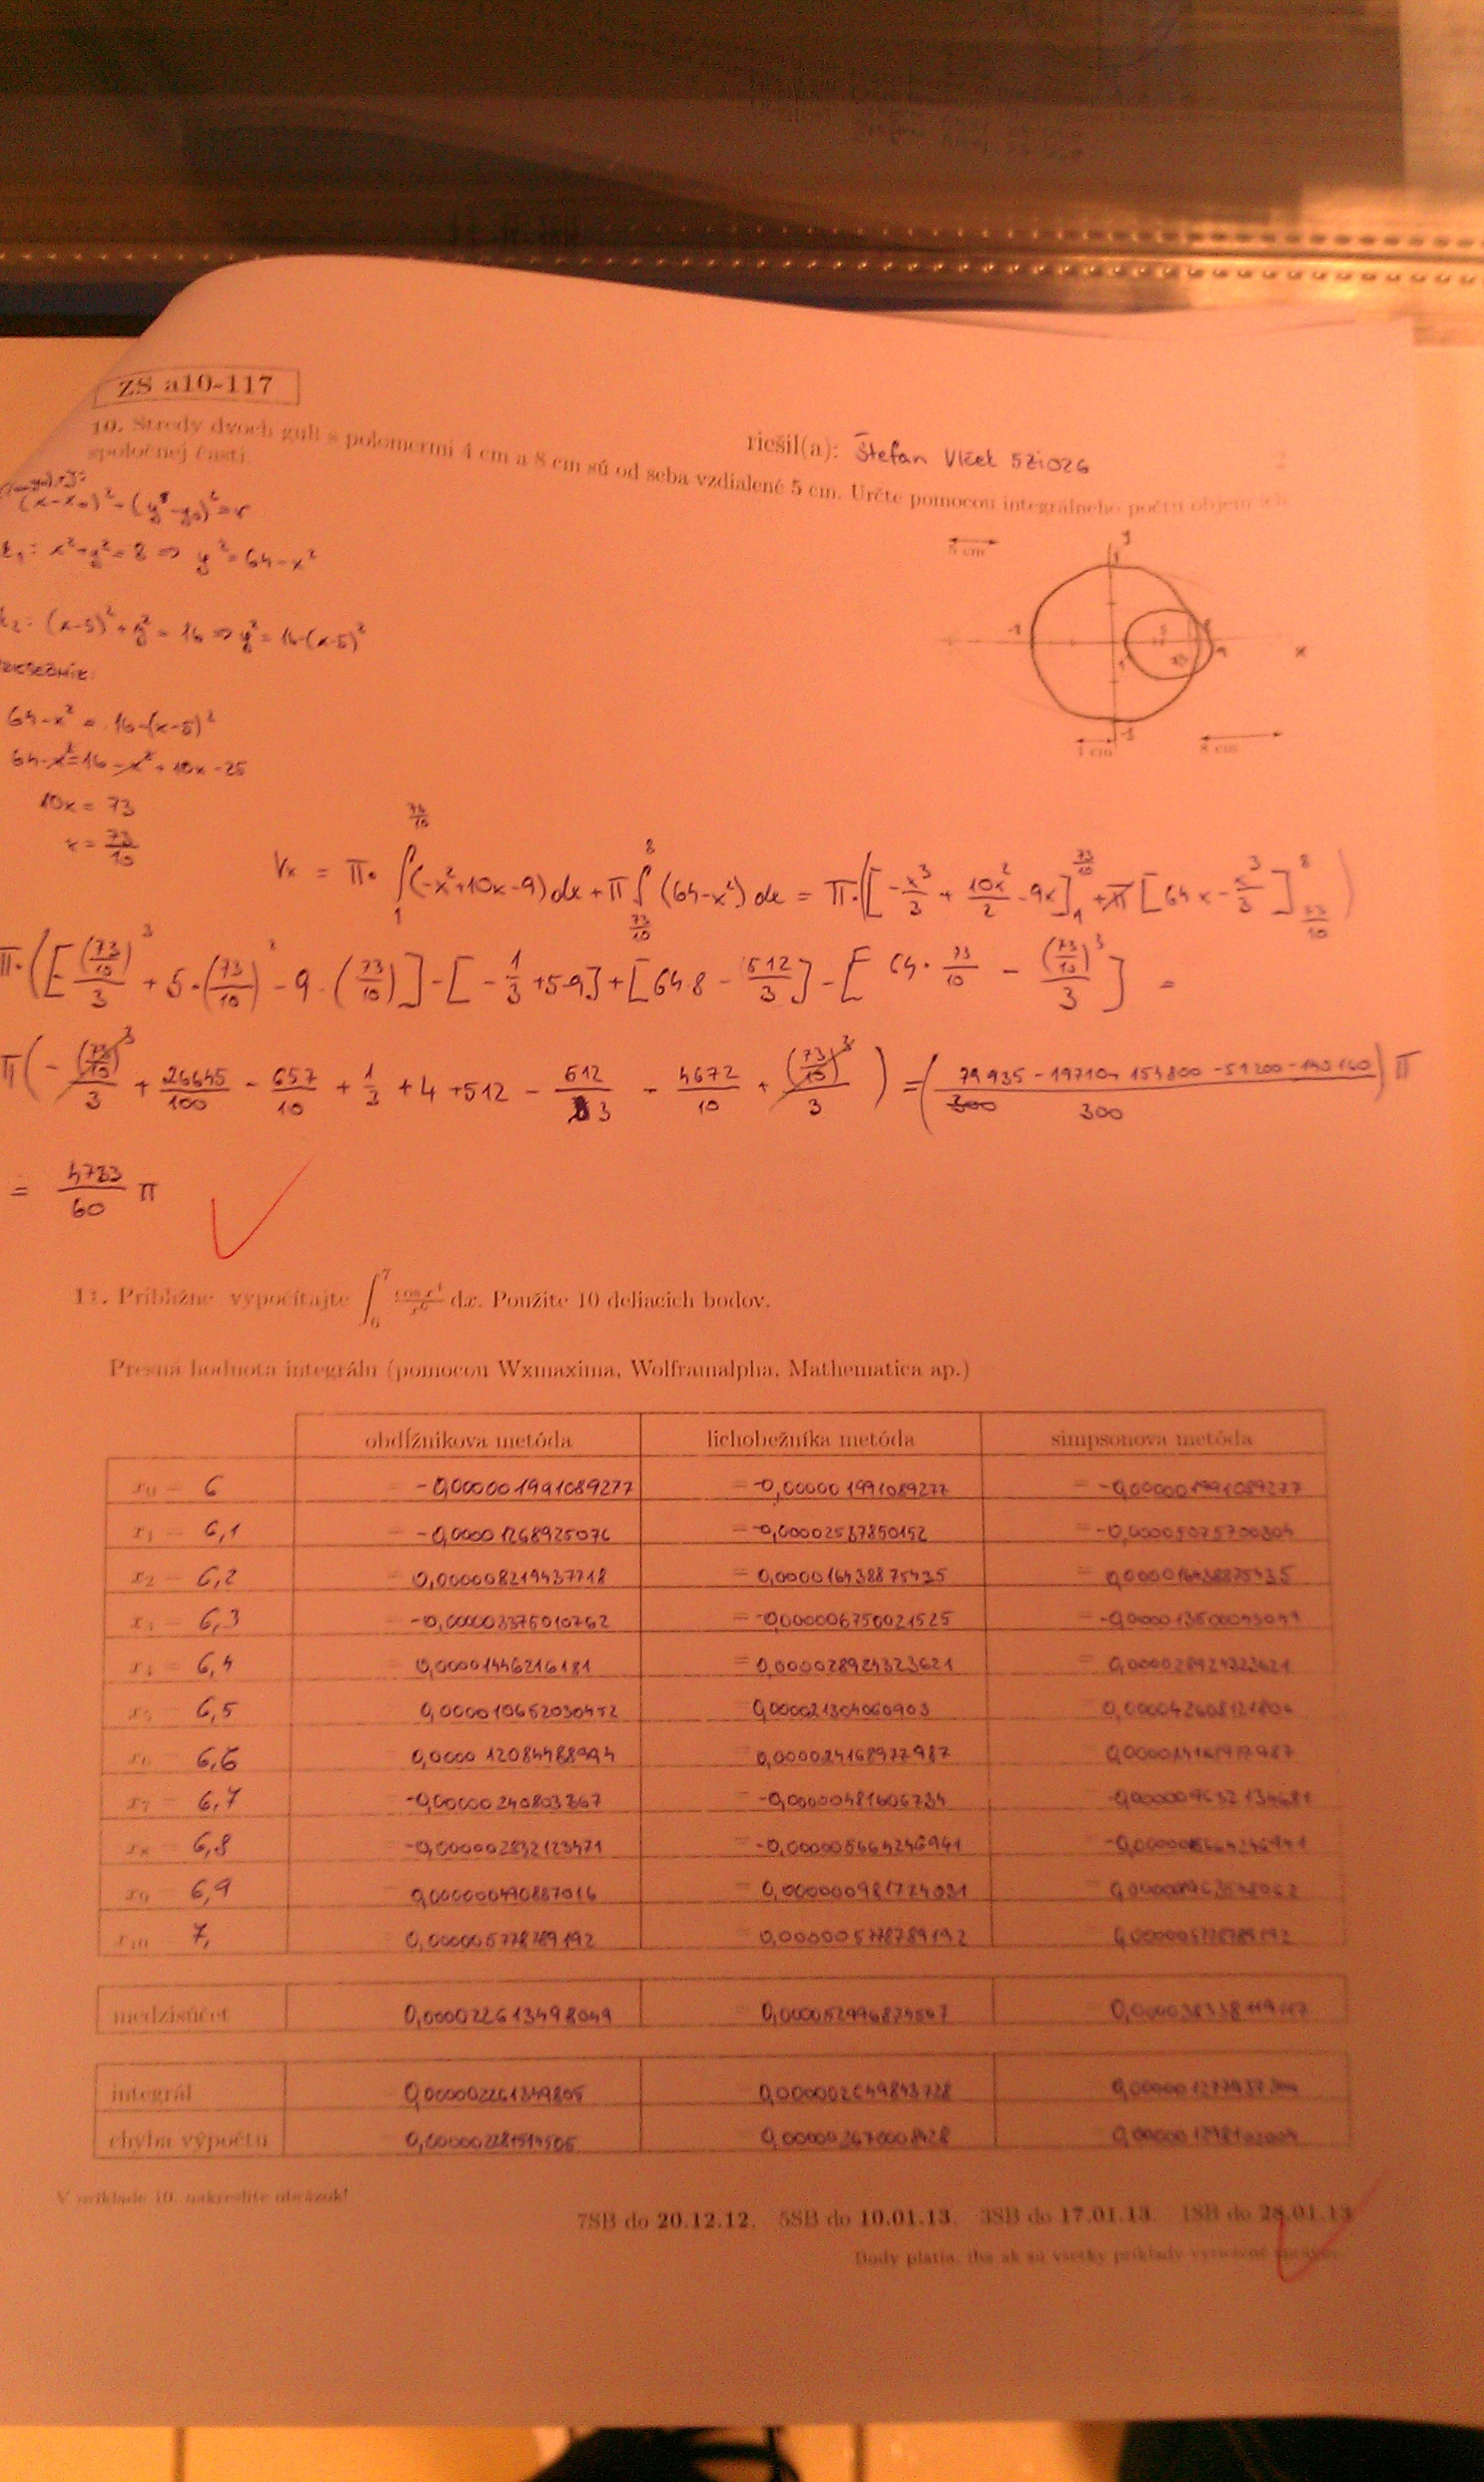 ZS a10-117
10. Stredy dvoch gulí s polomermi 4 cm a 8 cm sú od seba vzdialené 5 cm. Určte pomocou integrálneho počtu objem ich
spoločnej časti.
riešil(a): Štefan Vlček 5ZI026
(x-x₀)²+(y-y₀)²=r
k₁: x²+y²=8 ⇒ y²=64-x²
k₂: (x-5)²+y²=16 ⇒ y²=16-(x-5)²
64-x² = 16-(x-5)²
64-x²=16-x²+10x-25
10x = 73
x = 73/10
5 cm
y
x
-8
1
8
9
-8
4 cm
8 cm
Vx = π· ∫₁^(73/10) (-x²+10x-9)dx + π ∫_(73/10)^8 (64-x²)dx = π·([-x³/3 + 10x²/2 - 9x]₁^(73/10) + π[64x - x³/3]_(73/10)^8)
π·([(73/10)³/3 + 5·(73/10)² - 9·(73/10)] - [-1/3+5-9] + [64·8 - 512/3] - [64·73/10 - (73/10)³/3] =
π(-(73/10)³/3 + 26645/100 - 657/10 + 1/3 + 4 + 512 - 512/3 - 4672/10 + (73/10)³/3) = (79935 - 19710 + 154800 - 51200 - 140160 / 300) π
= 4733/60 π
11. Približne vypočítajte ∫₆⁷ cos x⁴/x⁶ dx. Použite 10 deliacich bodov.
Presná hodnota integrálu (pomocou Wxmaxima, Wolframalpha, Mathematica ap.)
obdĺžnikova metóda lichobežníka metóda simpsonova metóda
x₀ = 6 = -0,000001991089277 = -0,000001991089277 = -0,000001991089277
x₁ = 6,1 = -0,00001268925076 = -0,00002537850152 = -0,00005075700304
x₂ = 6,2 = 0,000008219437718 = 0,000016438875435 = 0,000016438875435
x₃ = 6,3 = -0,000003375010762 = -0,000006750021525 = -0,00001350004304
x₄ = 6,4 = 0,00001446216181 = 0,000028924323621 = 0,000028924323621
x₅ = 6,5 = 0,000010652030452 = 0,000021304060903 = 0,0000426081218
x₆ = 6,6 = 0,000012084488994 = 0,00002416897 7987 = 0,00002416897 7987
x₇ = 6,7 = -0,00000240803367 = -0,00000481606734 = -0,000009632134681
x₈ = 6,8 = -0,000002832123471 = -0,000005664246941 = -0,000005664246941
x₉ = 6,9 = 0,000000490887016 = 0,000000981774031
x₁₀ = 7, = 0,000005778789192 = 0,000005778789192 = 0,000005778789192
medzisúčet 0,00002261349 8049 0,000052996874567
integrál 0,000002261349805 0,000002649843728
chyba výpočtu
V príklade 10. nakreslite obrázok!
7SB do 20.12.12. 5SB do 10.01.13. 3SB do 17.01.13. 1SB do 28.01.13
Body platia, iba ak sú všetky príklady vyriešené správne.